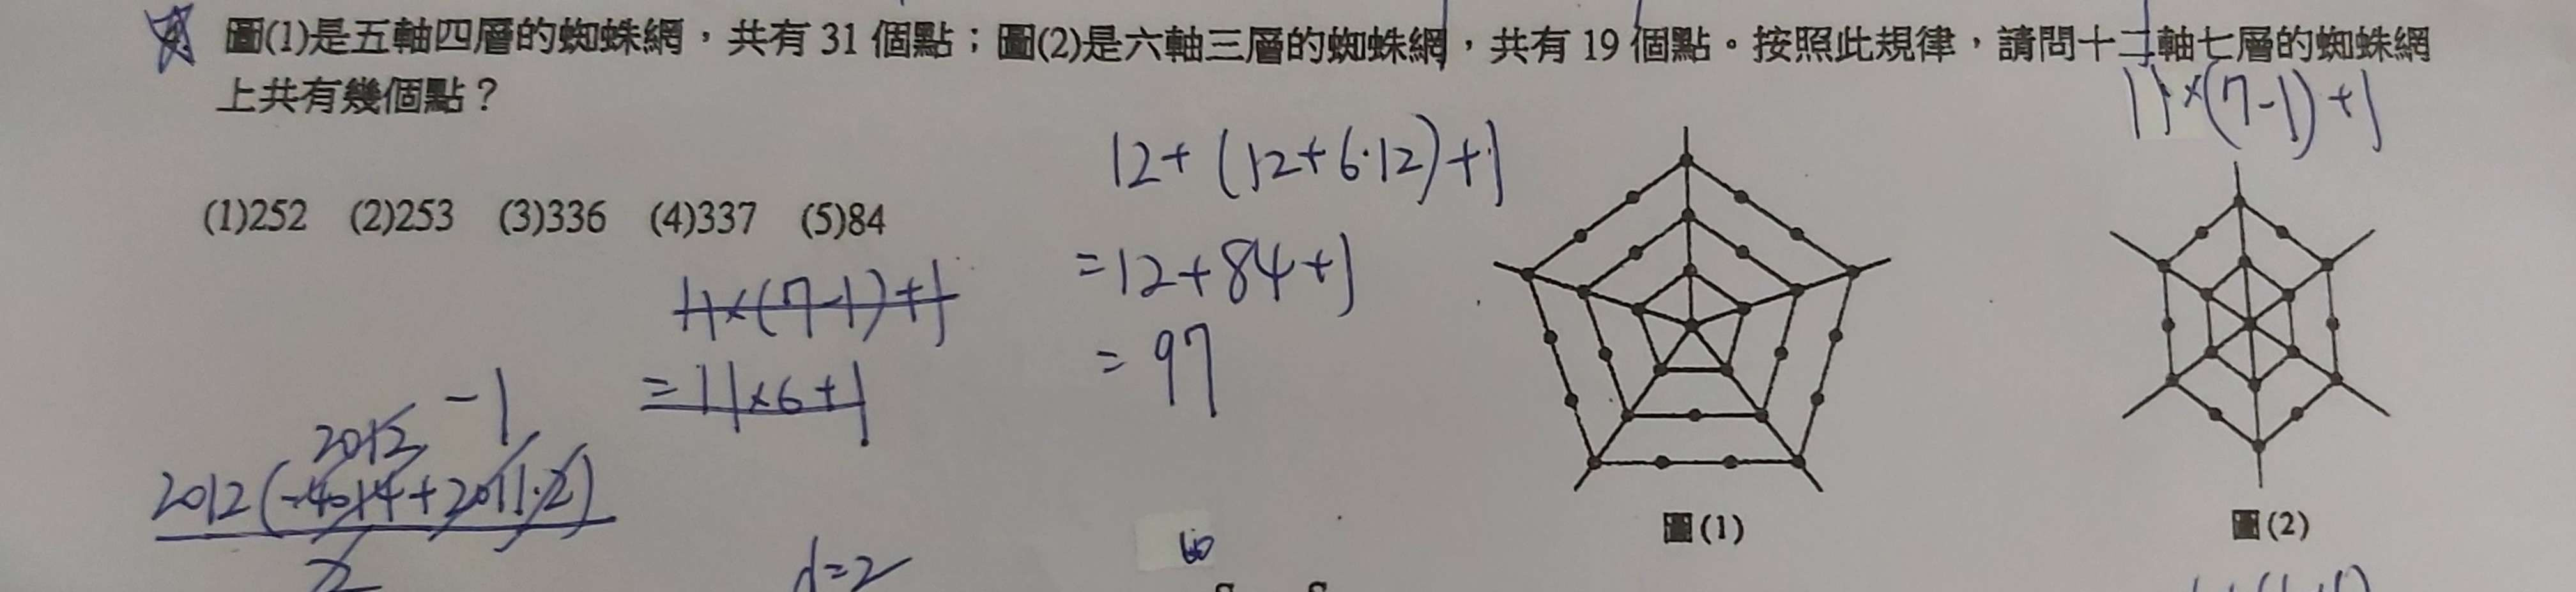 圖(1)是五軸四層的蜘蛛網，共有 31 個點；圖(2)是六軸三層的蜘蛛網，共有 19 個點。按照此規律，請問十二軸七層的蜘蛛網
上共有幾個點？
11×(7-1)+1
(1)252 (2)253 (3)336 (4)337 (5)84
12+(12+6·12)+1
=12+84+1
=97
11×(7-1)+1
=11×6+1
2012 -1
2012(-4014+2011·2)
2
d=2
60
圖(1)
圖(2)